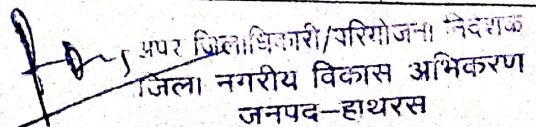 अपर जिलाधिकारी/परियोजना निदेशक
जिला नगरीय विकास अभिकरण
जनपद-हाथरस